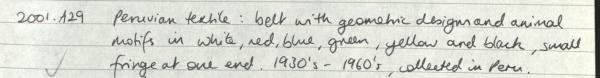 2001.A29 Peruvian textile: belt with geometric designs and animal
motifs in white, red, blue, green, yellow and black, small
fringe at one end. 1930's - 1960's, collected in Peru.